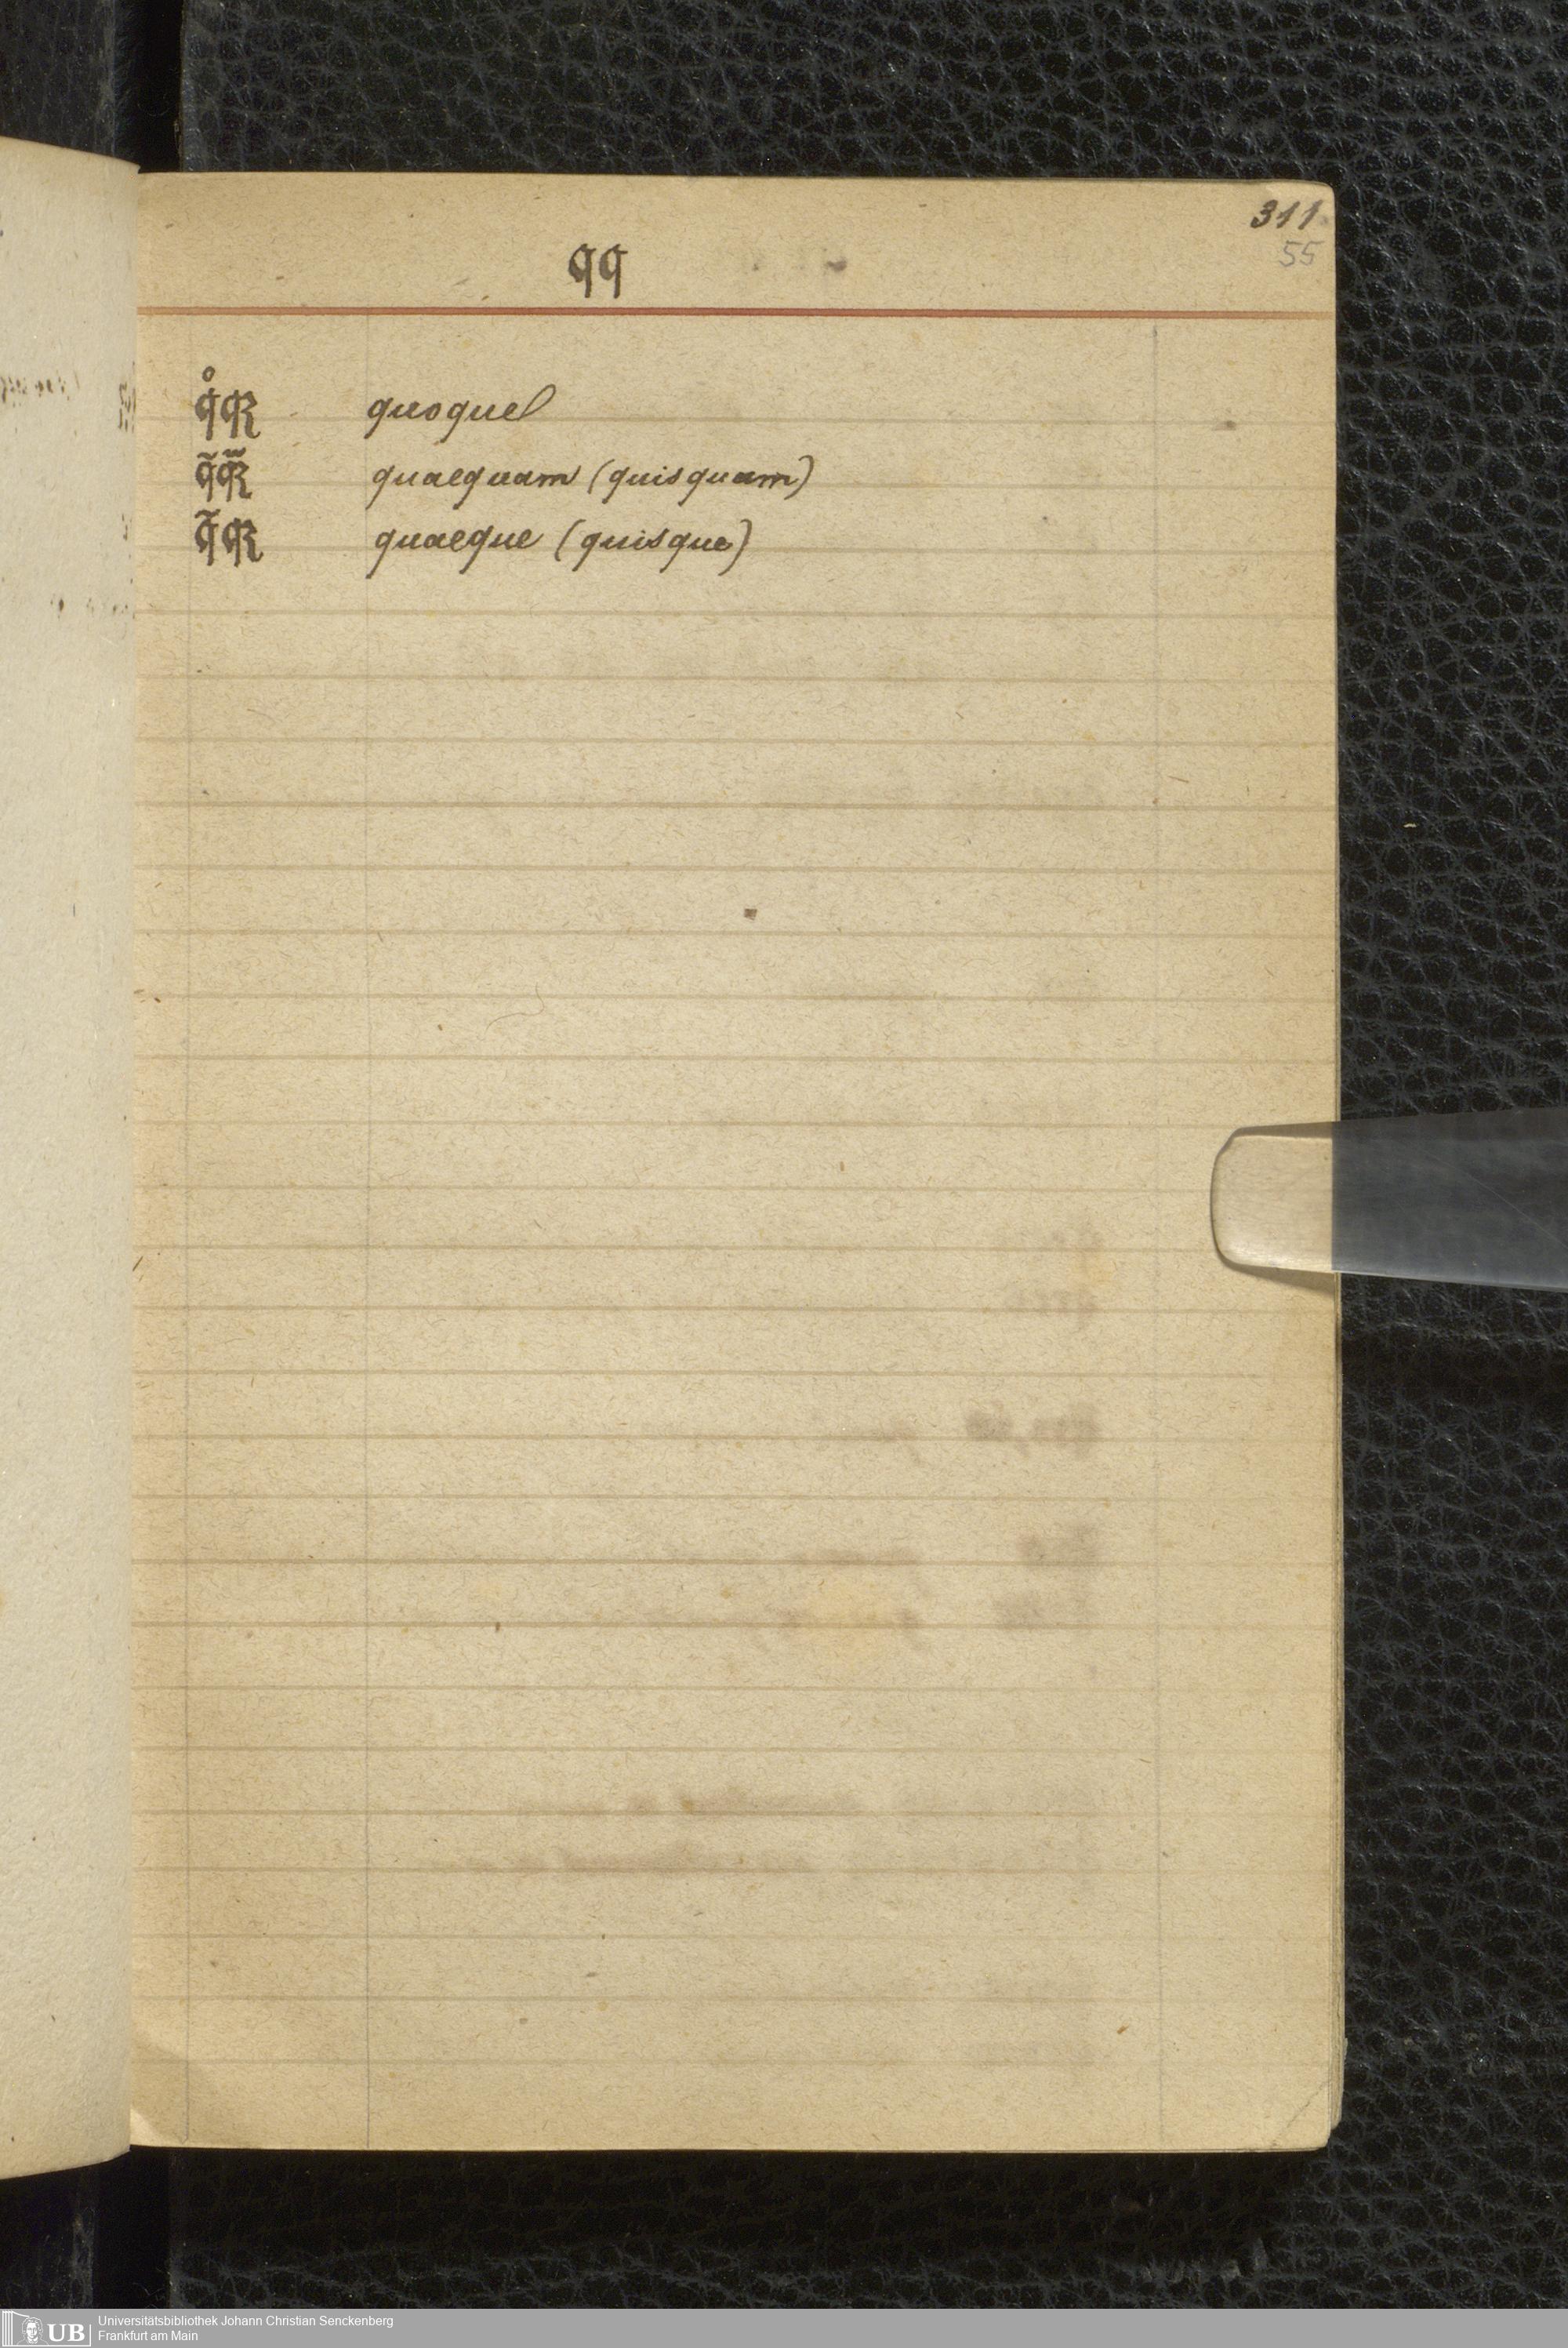 311
55
qq
q̊qꝛ quoque
q̃q̃ꝛ quaequam (quisquam)
q̃qꝛ quaeque (quisque)
UB
Universitätsbibliothek Johann Christian Senckenberg
Frankfurt am Main